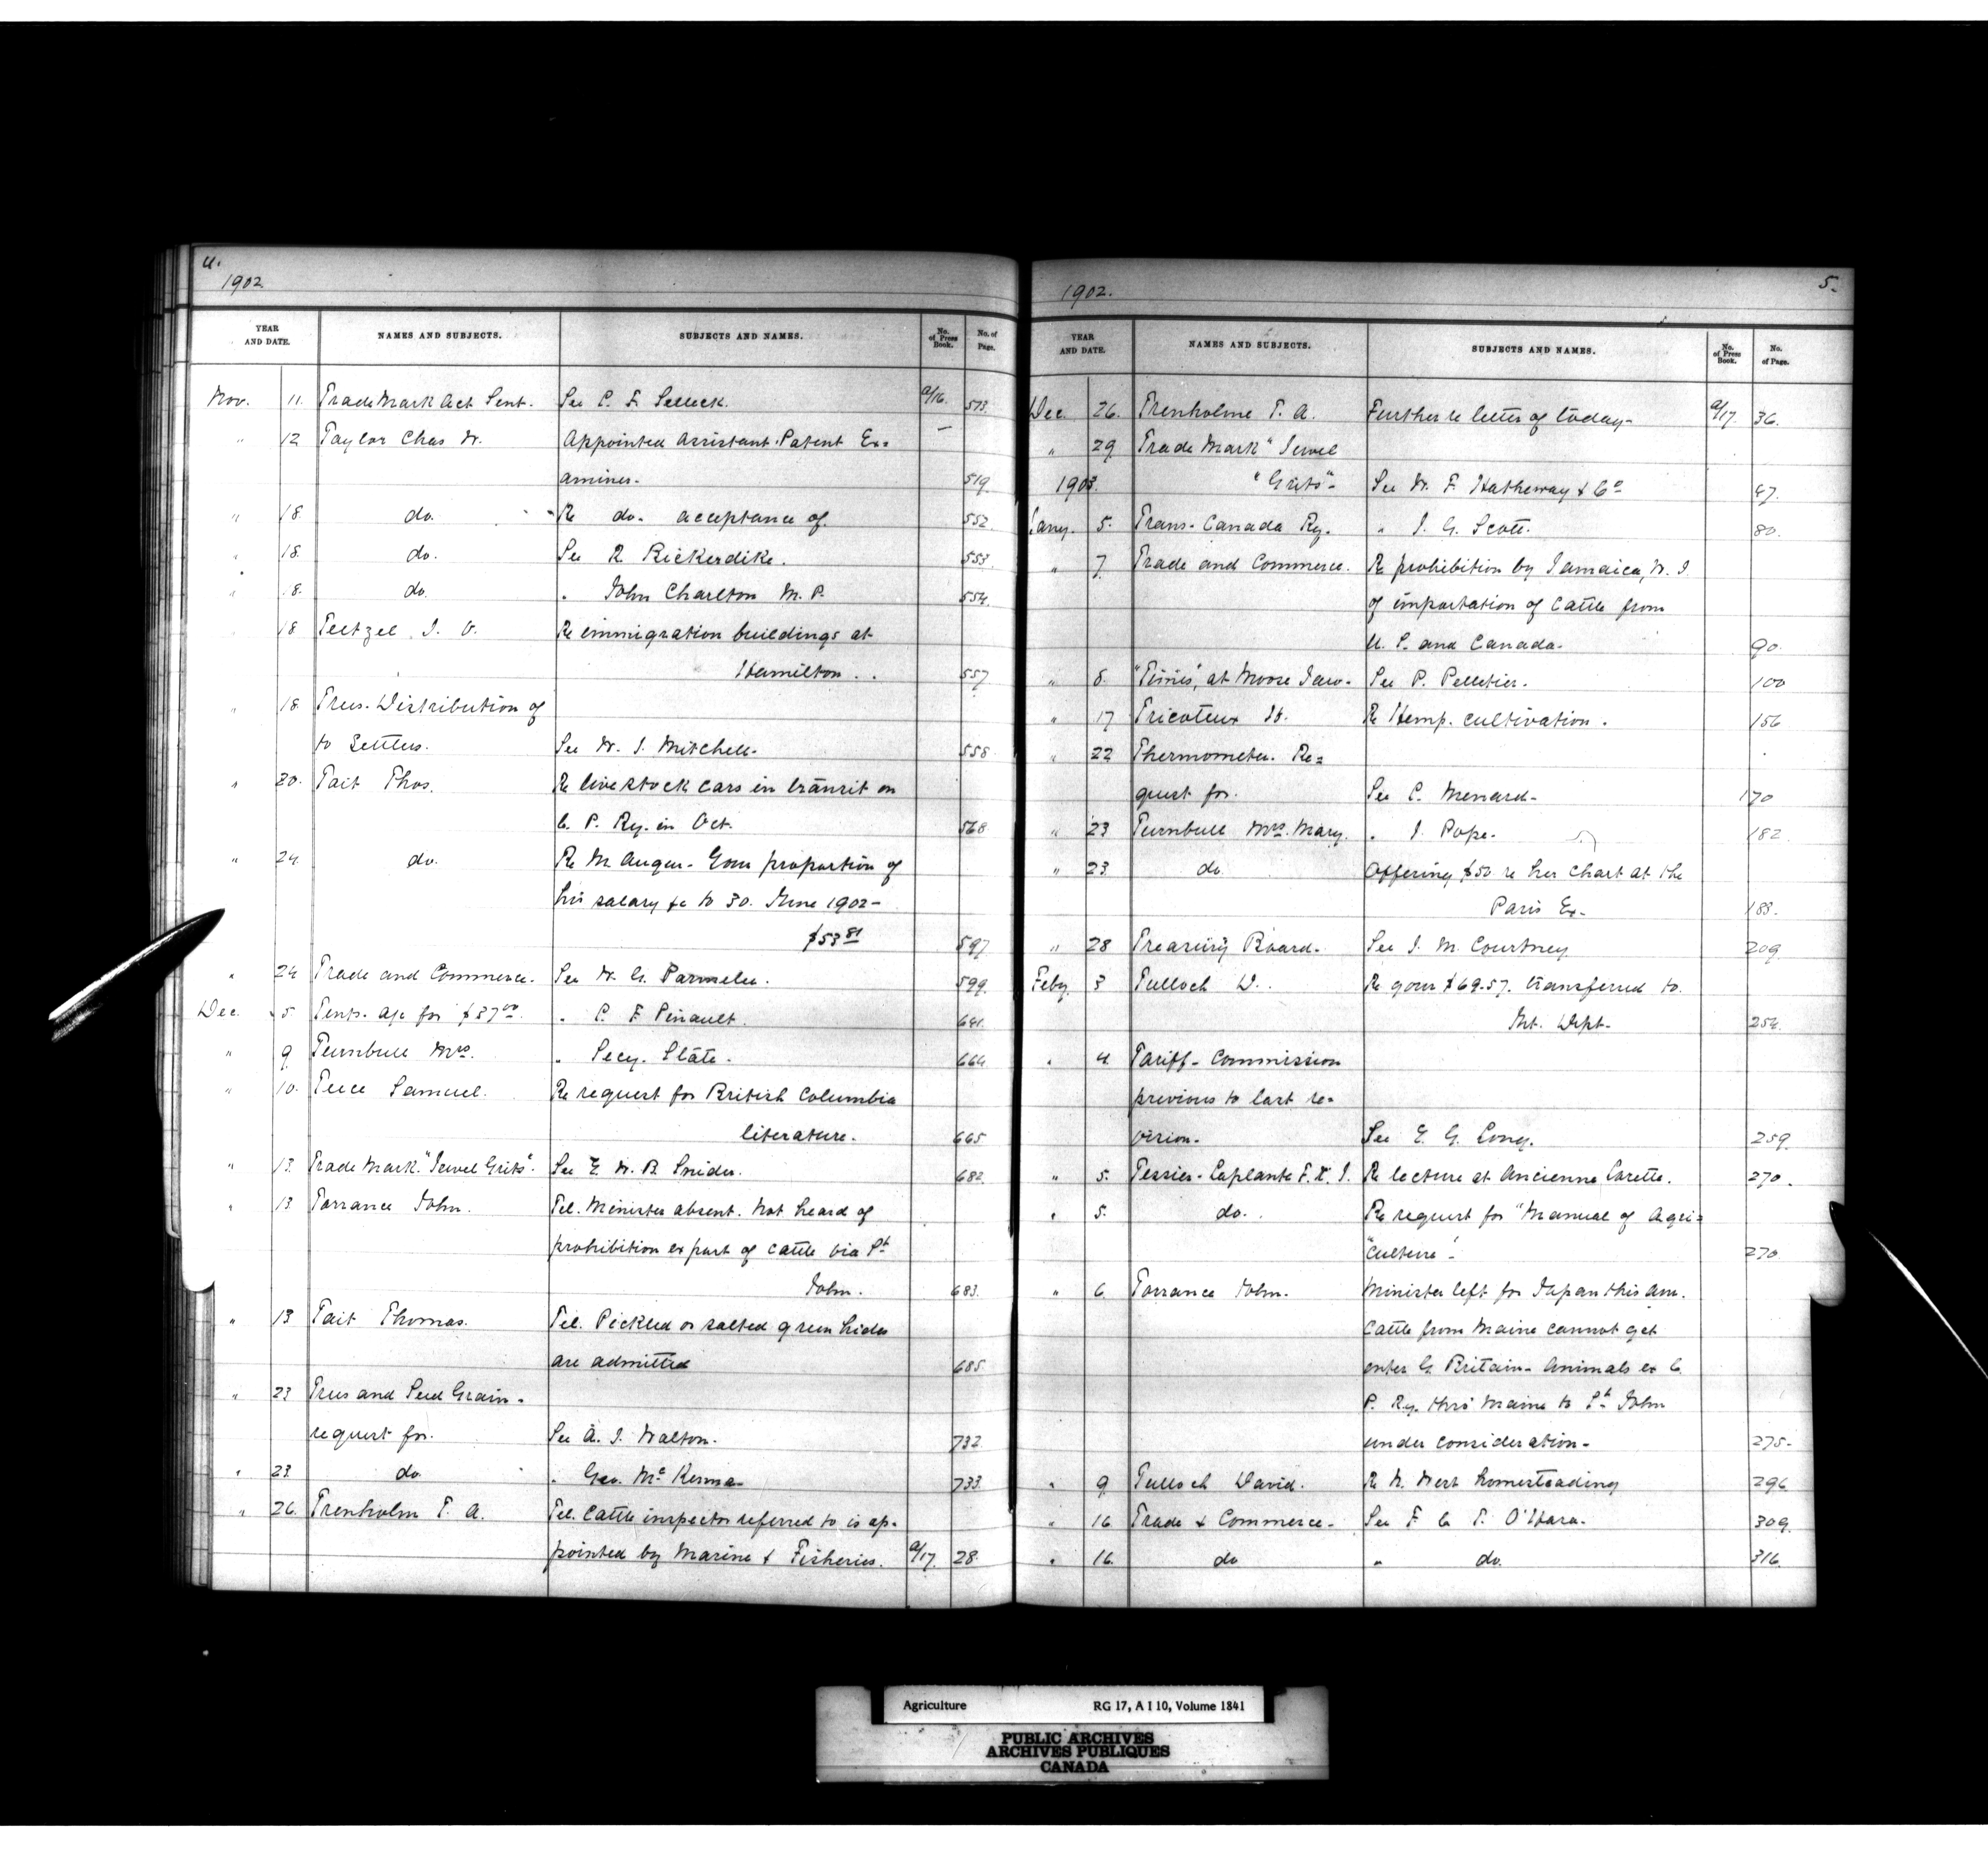 4.
1902
YEAR AND DATE. NAMES AND SUBJECTS. SUBJECTS AND NAMES. No. of Press Book. No. of Page.
Nov. 11. Trade Mark Act Sent. See C. F. Selleck. a/16. 513.
" 12 Taylor Chas W. Appointed Assistant Patent Ex=
aminer. 519.
" 18. do. Re do. acceptance of. 552.
" 18. do. See R Bickerdike. 553.
" 18. do. " John Charlton M. P. 554.
18 Teetzel J. V. Re immigration buildings at
Hamilton. 557
" 18. Trees. Distribution of
to Settlers. See W. J. Mitchell. 558
" 20. Tait Thos. Re live stock cars in transit on
C. P. Ry. in Oct. 568
" 24 do. Re M. Auger. Your proportion of
his salary &c to 30. June 1902-
$53 81 597
" 24 Trade and Commerce. See W. G. Parmelee. 599.
Dec. 5 Tents. a/c for $37 00. " C. F. Pinault. 641.
" 9 Turnbull Mrs. " Secy. State. 664
" 10. Tuce Samuel. Re request for British Columbia
literature. 665
" 13. Trade Mark. "Jewel Grits". See E. W. B. Snider. 682.
" 13 Torrance John. Tel. Minister absent. Not heard of
prohibition export of cattle via St
John. 683.
" 13 Tait Thomas. Tel. Pickled or salted green hides
are admitted 685.
" 23 Trees and Seed Grain.
request for. See A. J. Walton. 732.
" 23. do " Geo. McKenna 733.
" 26. Trenholm T. A. Tel. Cattle inspector referred to is ap=
pointed by Marine & Fisheries. a/17. 28.
1902. 5.
YEAR AND DATE. NAMES AND SUBJECTS. SUBJECTS AND NAMES. No. of Press Book. No. of Page.
Dec. 26. Trenholme T. A. Further re letter of today. a/17. 36.
" 29 Trade Mark "Jewel
1903. "Grits" See W. F. Hatheway & Co 47.
Jany. 5. Trans-Canada Ry. " J. G. Scott. 80.
" 7. Trade and Commerce. Re prohibition by Jamaica, W. I.
of importation of cattle from
U. S. and Canada. 90.
" 8. "Times", at Moose Jaw. See P. Pelletier. 100
" 17 Tricoteux H. Re Hemp. cultivation. 156
" 22 Thermometer. Re=
quest for. See C. Menard. 170
" 23 Turnbull Mrs. Mary. " J. Pope. 182
" 23 do Offering $50 re her chart at the
Paris Ex. 188.
" 28 Treasury Board. See J. M. Courtney 209.
Feby. 3 Tulloch D. Re your $69.57. transferred to.
Int. Dept. 254.
" 4 Tariff. Commission
previous to last re=
vision. See E. G. Long. 259.
" 5. Tessier-Laplante F. X. J. Re lecture at Ancienne Lorette. 270.
" 5. do. Re request for "Manual of Agri=
"culture". 270.
" 6 Torrance John. Minister left for Japan this am.
Cattle from Maine cannot get
enter G. Britain. Animals ex C.
P. Ry. thro' Maine to St. John
under consideration. 275.
" 9 Tulloch David. Re N. West homesteading 296
" 16 Trade & Commerce. See F. C. T. O'Hara. 309.
" 16 do " do. 316.
Agriculture RG 17, A I 10, Volume 1841
PUBLIC ARCHIVES
ARCHIVES PUBLIQUES
CANADA